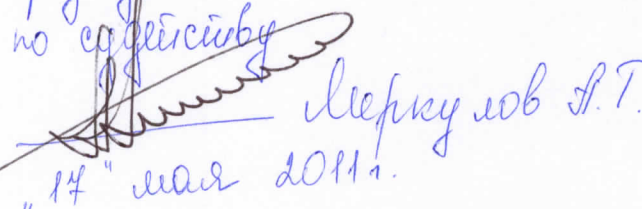 по судейству
Меркулов А.Г.
"17" мая 2011г.